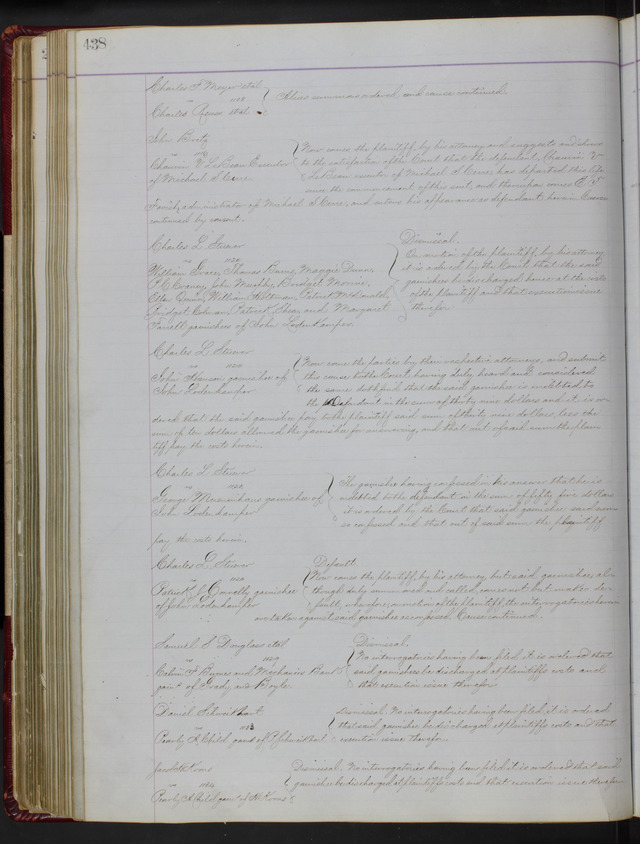 438
Charles F. Meyer et al
vs 1128
Charles et al
Alias summons ordered and cause continued.
John
vs
Executor
of Michael S. Cerre.
Now comes the plaintiff, by his attorney and suggests and shows
to the satisfaction of the Court that the defendant,
executor of Michael S. Cerre has departed this life
since the commencement of this suit, and thereupon comes
administrator of Michael S. Cerre, and enters his appearance as defendant herein Cause
continued by consent.
Charles L. Steiner
vs 1120
William Grace, Thomas Maggie Dunn,
John Murphy, Bridget
Ellen Quinn, William Patrick McDonald,
Bridget Patrick Shea, and Margaret
Farrell garnishees of John Lodenkamper.
Dismissal.
On motion of the plaintiff, by his attorney
it is ordered by the Court that the said
garnishees be discharged hence at the costs
of the plaintiff and that execution issue
therefor.
Charles L. Steiner
vs 1120
John Hanson garnishee of
John Lodenkamper
Now come the parties by their respective attorneys, and submit
this cause to the Court having duly heard and considered
the same doth find that the said garnishee is indebted to
the defendant in the sum of thirty nine dollars and it is or-
dered that the said garnishee pay to the plaintiff said sum of thirty nine dollars, less the
sum of ten dollars allowed the garnishee for answering, and that out of such sum the plain-
tiff pay the costs herein.
Charles L. Steiner
vs 1120
George garnishee of
John Lodenkamper
The garnishee having confessed in his answer that he is
indebted to the defendant in the sum of fifty five dollars
it is ordered by the Court that said garnishee said sum
so confessed and that out of said sum the plaintiff
pay the costs herein.
Charles L. Steiner
vs 1120
Patrick J. Connelly garnishee
of John Lodenkamper
Default.
Now comes the plaintiff, by his attorney but said garnishee, al-
though duly summoned and called, comes not but makes de-
fault, wherefore, on motion of the plaintiff, the interrogatories herein
are taken against said garnishee as confessed. Cause continued.
Samuel S. Douglass et al
vs 1129
Calvin F. Burnes and Mechanics Bank
garnt of Grady and
Dismissal.
No interrogatories having been filed it is ordered that
said garnishees be discharged at plaintiffs costs and
that execution issue therefor.
Daniel Schmidhart
vs
Pearly A. Child garnt of
Dismissal. No interrogatories having been filed, it is ordered
that said garnishee be discharged at plaintiffs costs and that
execution issue therefor.
Jacob
vs
Pearly A. Child garnt of
Dismissal. No interrogatories having been filed it is ordered that said
garnishee be discharged at plaintiffs costs and that execution issue therefor